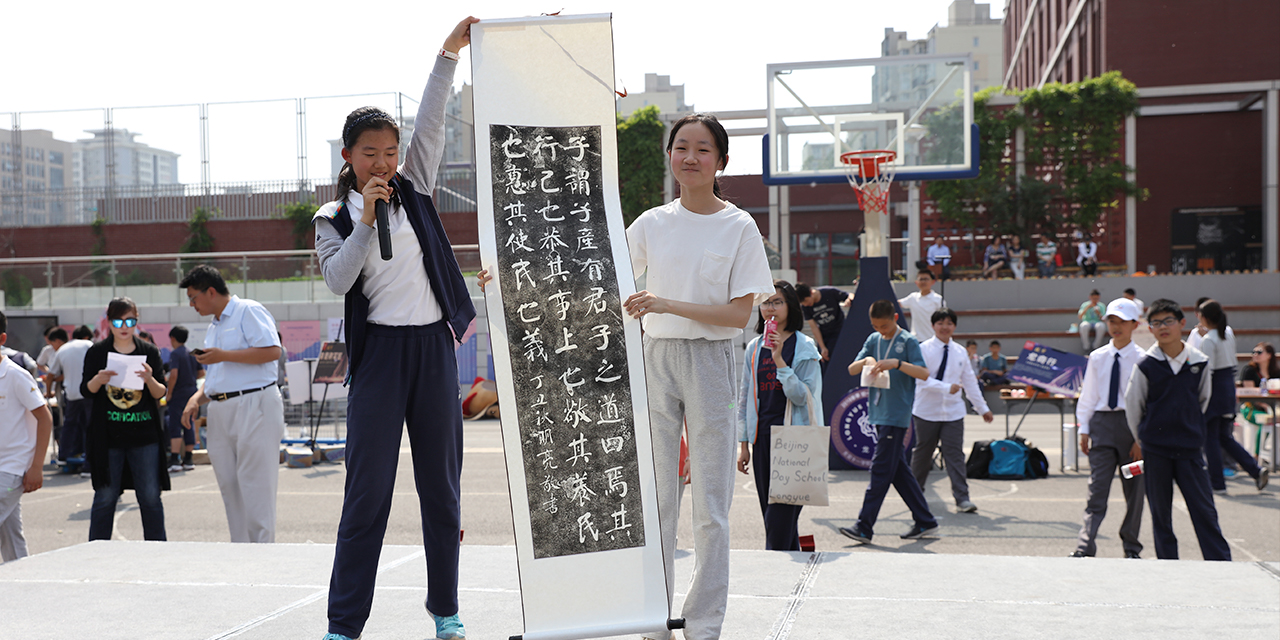 子謂子產有君子之道四焉其
行己也恭其事上也敬其養民
也惠其使民也義 丁丑秋明亮敬書
Beijing
National
Day School
Longyue